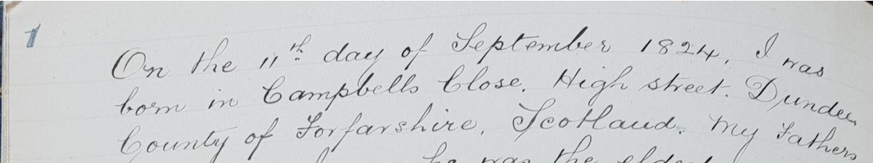 1
On the 11th day of September 1824, I was
born in Campbells Close. High street. Dundee
County of Forfarshire. Scotland. My Fathers
he was the eldest